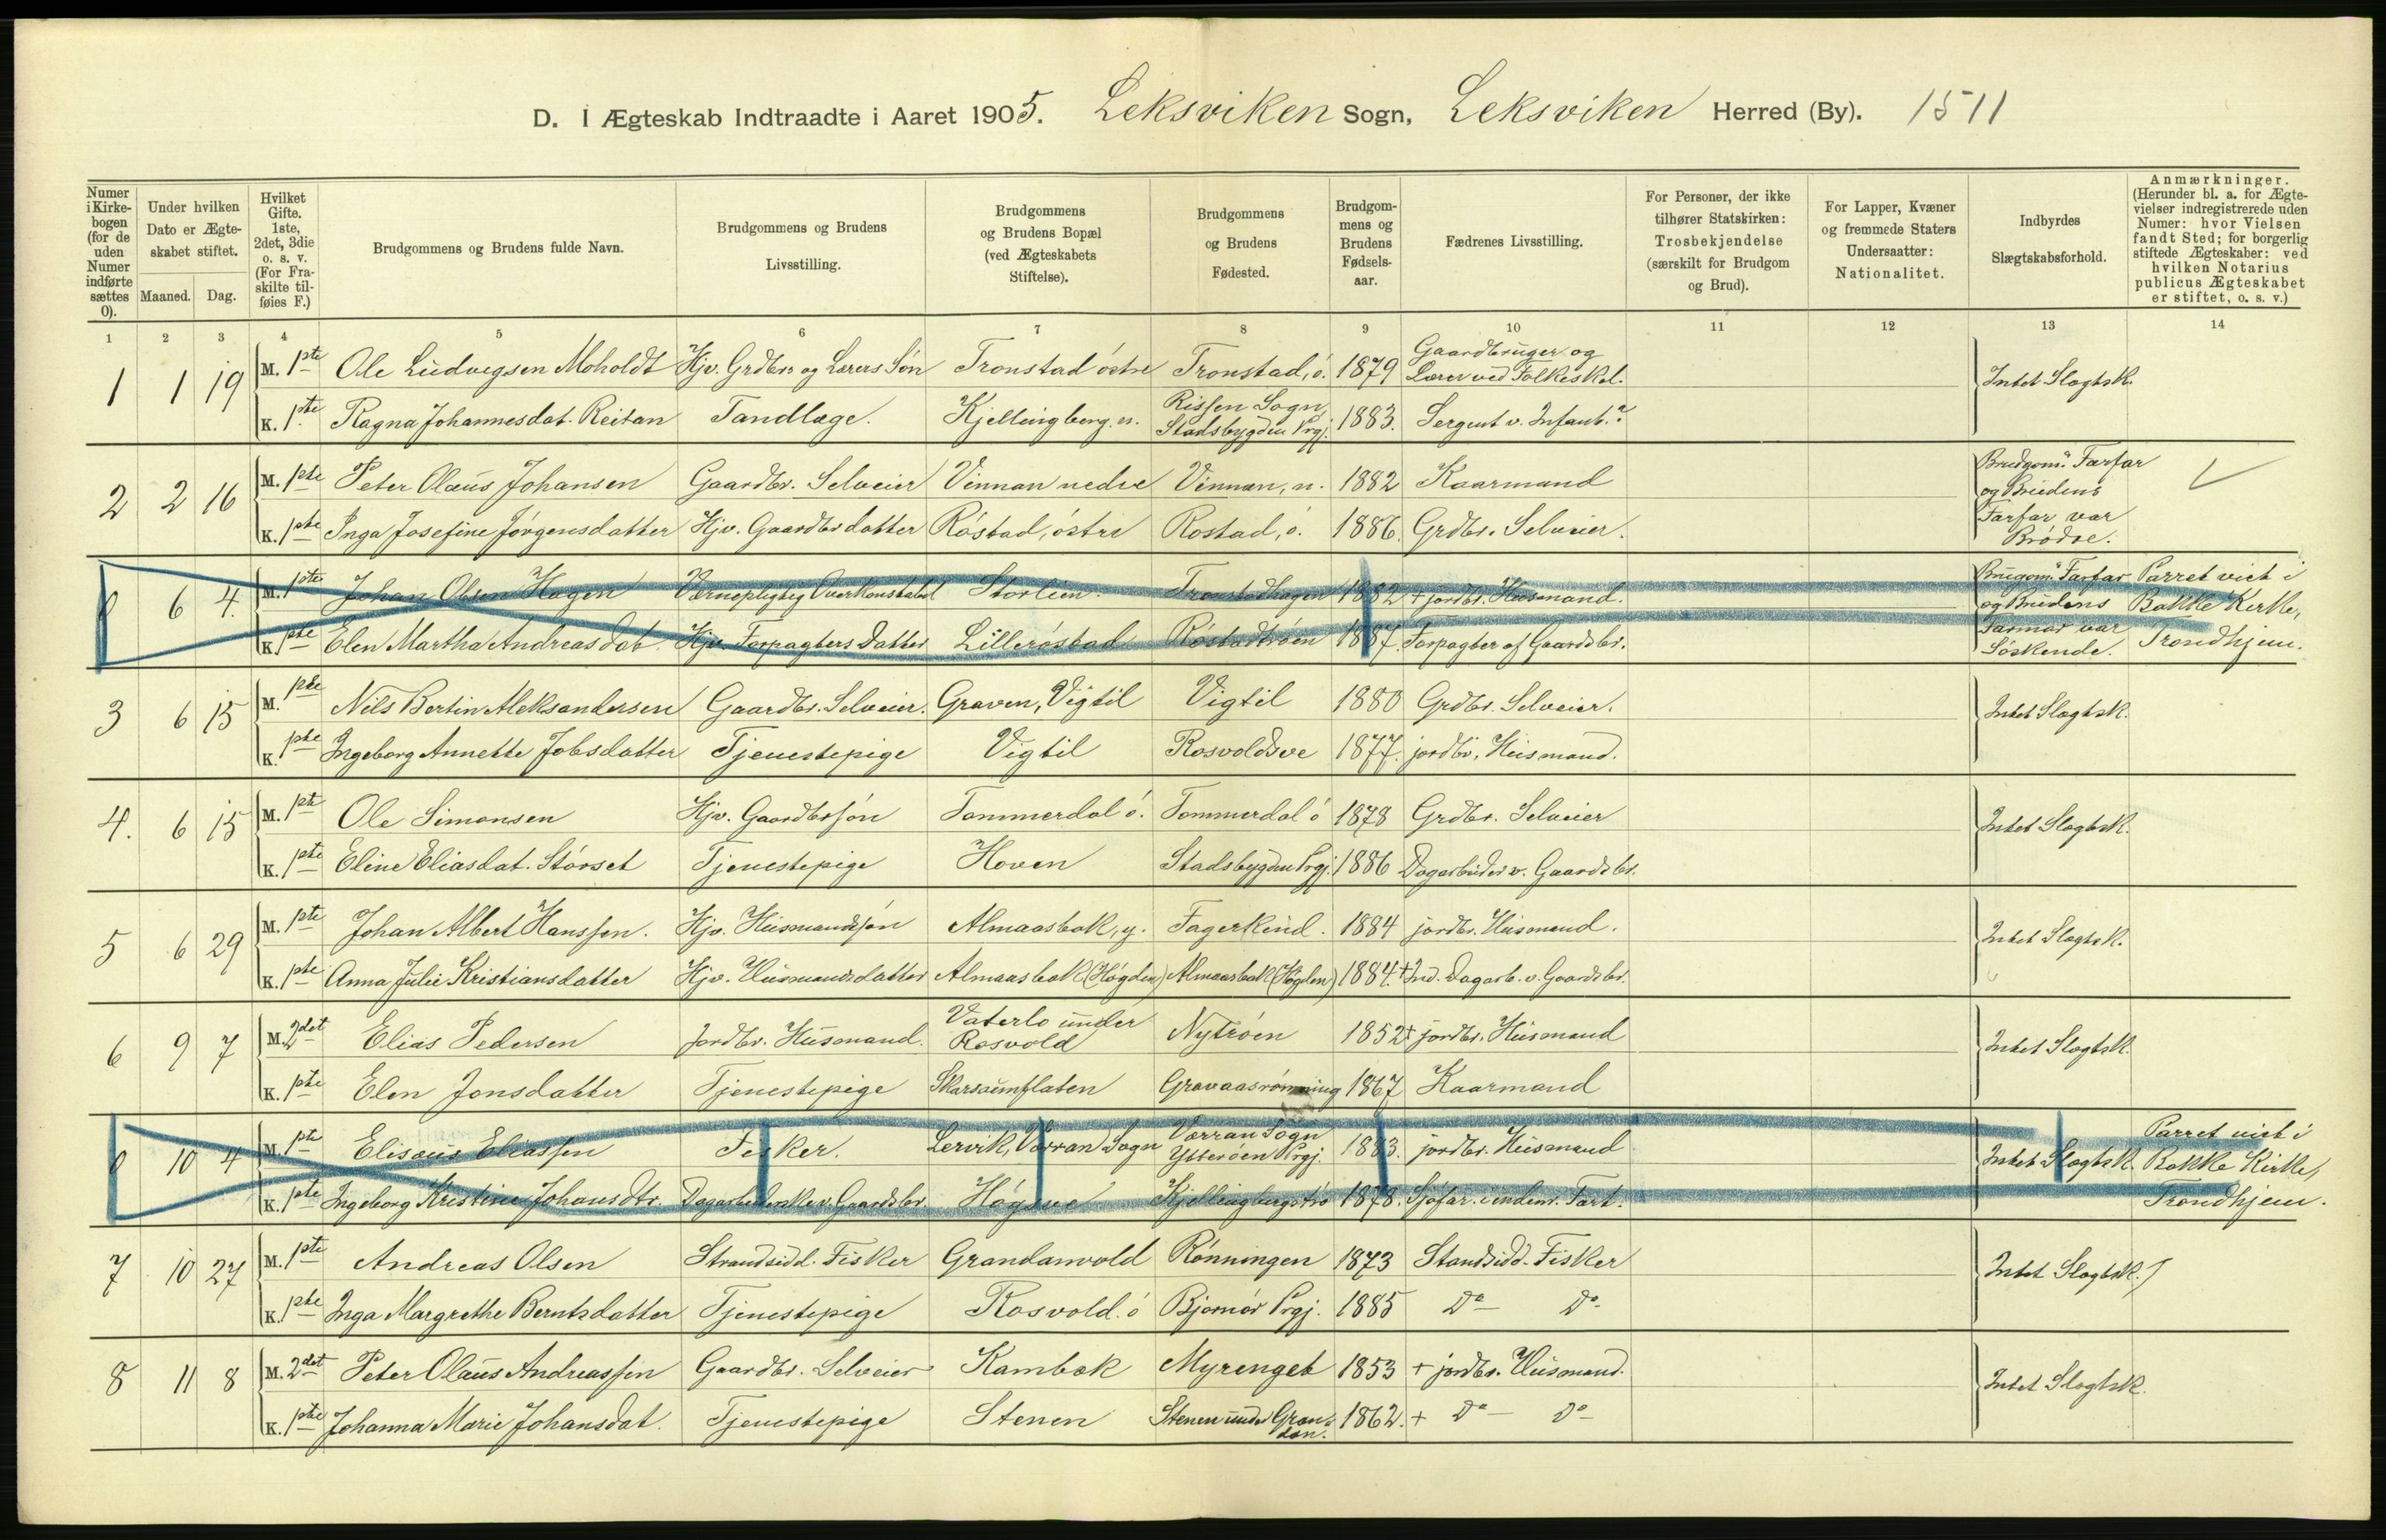 D. I Ægteskab Indtraadte i Aaret 1905. Leksviken Sogn, Leksviken Herred (By). 1511
Numer i Kirkebogen (for de uden Numer indførte sættes 0).
Under hvilken Dato er Ægteskabet stiftet.
Maaned. Dag.
Hvilket Gifte. 1ste, 2det, 3die o. s. v. (For Fraskilte tilføies F.)
Brudgommens og Brudens fulde Navn.
Brudgommens og Brudens Livsstilling.
Brudgommens og Brudens Bopæl (ved Ægteskabets Stiftelse).
Brudgommens og Brudens Fødested.
Brudgommens og Brudens Fødselsaar.
Fædrenes Livsstilling.
For Personer, der ikke tilhører Statskirken: Trosbekjendelse (særskilt for Brudgom og Brud).
For Lapper, Kvæner og fremmede Staters Undersaatter: Nationalitet.
Indbyrdes Slægtskabsforhold.
Anmærkninger. (Herunder bl. a. for Ægtevielser indregistrerede uden Numer: hvor Vielsen fandt Sted; for borgerlig stiftede Ægteskaber: ved hvilken Notarius publicus Ægteskabet er stiftet, o. s. v.)
1 2 3 4 5 6 7 8 9 10 11 12 13 14
1 1 19 M. 1ste Ole Ludvigsen Moholdt Hjv. Grdbrs og Lærers Søn Tronstad østre Tronstad, ø. 1879 Gaardbruger og Lærer ved Folkeskol. Intet Slægtsk.
K. 1ste Ragna Johannesdat. Reitan Tandlæge. Kjellingberg. n. Rissen Sogn, Stadsbygden Prgj. 1883. Sergent v. Infant.
2 2 16 M. 1ste Peter Olaus Johansen Gaardbr. Selveier Vinnan nedre Vinnan, n. 1882 Kaarmand Brudgom.s Farfar og Brudens Farfar var Brødre.
K. 1ste Inga Josefine Jørgensdatter Hjv. Gaardbrdatter Røstad, østre Røstad, ø. 1886. Grdbr. Selveier.
0 6 4. M. 1ste Johan Olsen Hagen Værnepligtig Overkonstabel Storlien. Tronstadhagen 1882 + jordbr. Husmand. Brugom.s Farfar og Brudens Farmor var Søskende. Parret viet i Bakke Kirke, Trondhjem.
K. 1ste Elen Martha Andreasdat. Hjv. Forpagters Datter Lillerøstad Røstadtrøen 1887. Forpagter af Gaardsbr.
3 6 15 M. 1ste Nils Bertin Aleksandersen Gaardbr. Selveier. Graven, Vigtil Vigtil 1880 Grdbr. Selveier. Intet Slægtsk.
K. 1ste Ingeborg Annette Jobsdatter Tjenestepige Vigtil Rosvoldsve 1877. jordbr. Husmand.
4. 6 15 M. 1ste Ole Simonsen Hjv. Gaardbrsøn Tømmerdal ø. Tømmerdal ø 1878 Grdbr. Selveier Intet Slægtsk.
K. 1ste Eline Eliasdat. Størset Tjenestepige Hoven Stadsbygden Prgj. 1886 Dagarbeider v. Gaardsbr.
5 6 29 M. 1ste Johan Albert Hanssen. Hjv. Husmandssøn Almaasbak, y. Fagerkind. 1884 jordbr. Husmand. Intet Slægtsk.
K. 1ste Anna Julie Kristiansdatter Hjv. Husmandsdatter Almaasbak (Høgden) Almaasbak (Høgden) 1884. + Ind. Dagarb. v. Gaardsbr.
6 9 7 M. 2det Elias Pedersen Jordbr. Husmand. Vaterlo under Rosvold Nytrøen 1852 + jordbr. Husmand Intet Slægtsk.
K. 1ste Elen Jonsdatter Tjenestepige Skarsaumflaten Gravaasrønning 1867 Kaarmand
0 10 4 M. 1ste Elisæus Eliassen Fisker. Lervik, Værran Sogn Værran Sogn Ytterøen Prgj. 1883. jordbr. Husmand Intet Slægtsk. Parret viet i Bakke Kirke, Trondhjem.
K. 1ste Ingeborg Kristine Johansdtr. Dagarbeiderske v. Gaardsbr. Høgsve Kjellingbergstrø 1878. Sjøfar. i indenr. Fart.
7 10 27 M. 1ste Andreas Olsen Strandsidd. Fisker Grandanvold Rønningen 1873 Standsidd. Fisker Intet Slægtsk.
K. 1ste Inga Margrethe Berntsdatter Tjenestepige Rosvold. ø Bjørnør Prgj. 1885 Do Do
8 11 8 M. 2det Peter Olaus Andreassen Gaardbr. Selveier Kambak Myrenget 1853 + jordbr. Husmand. Intet Slægtsk.
K. 1ste Johanna Marie Johansdat. Tjenestepige Stenen Stenen under Grandan. 1862. + Do Do